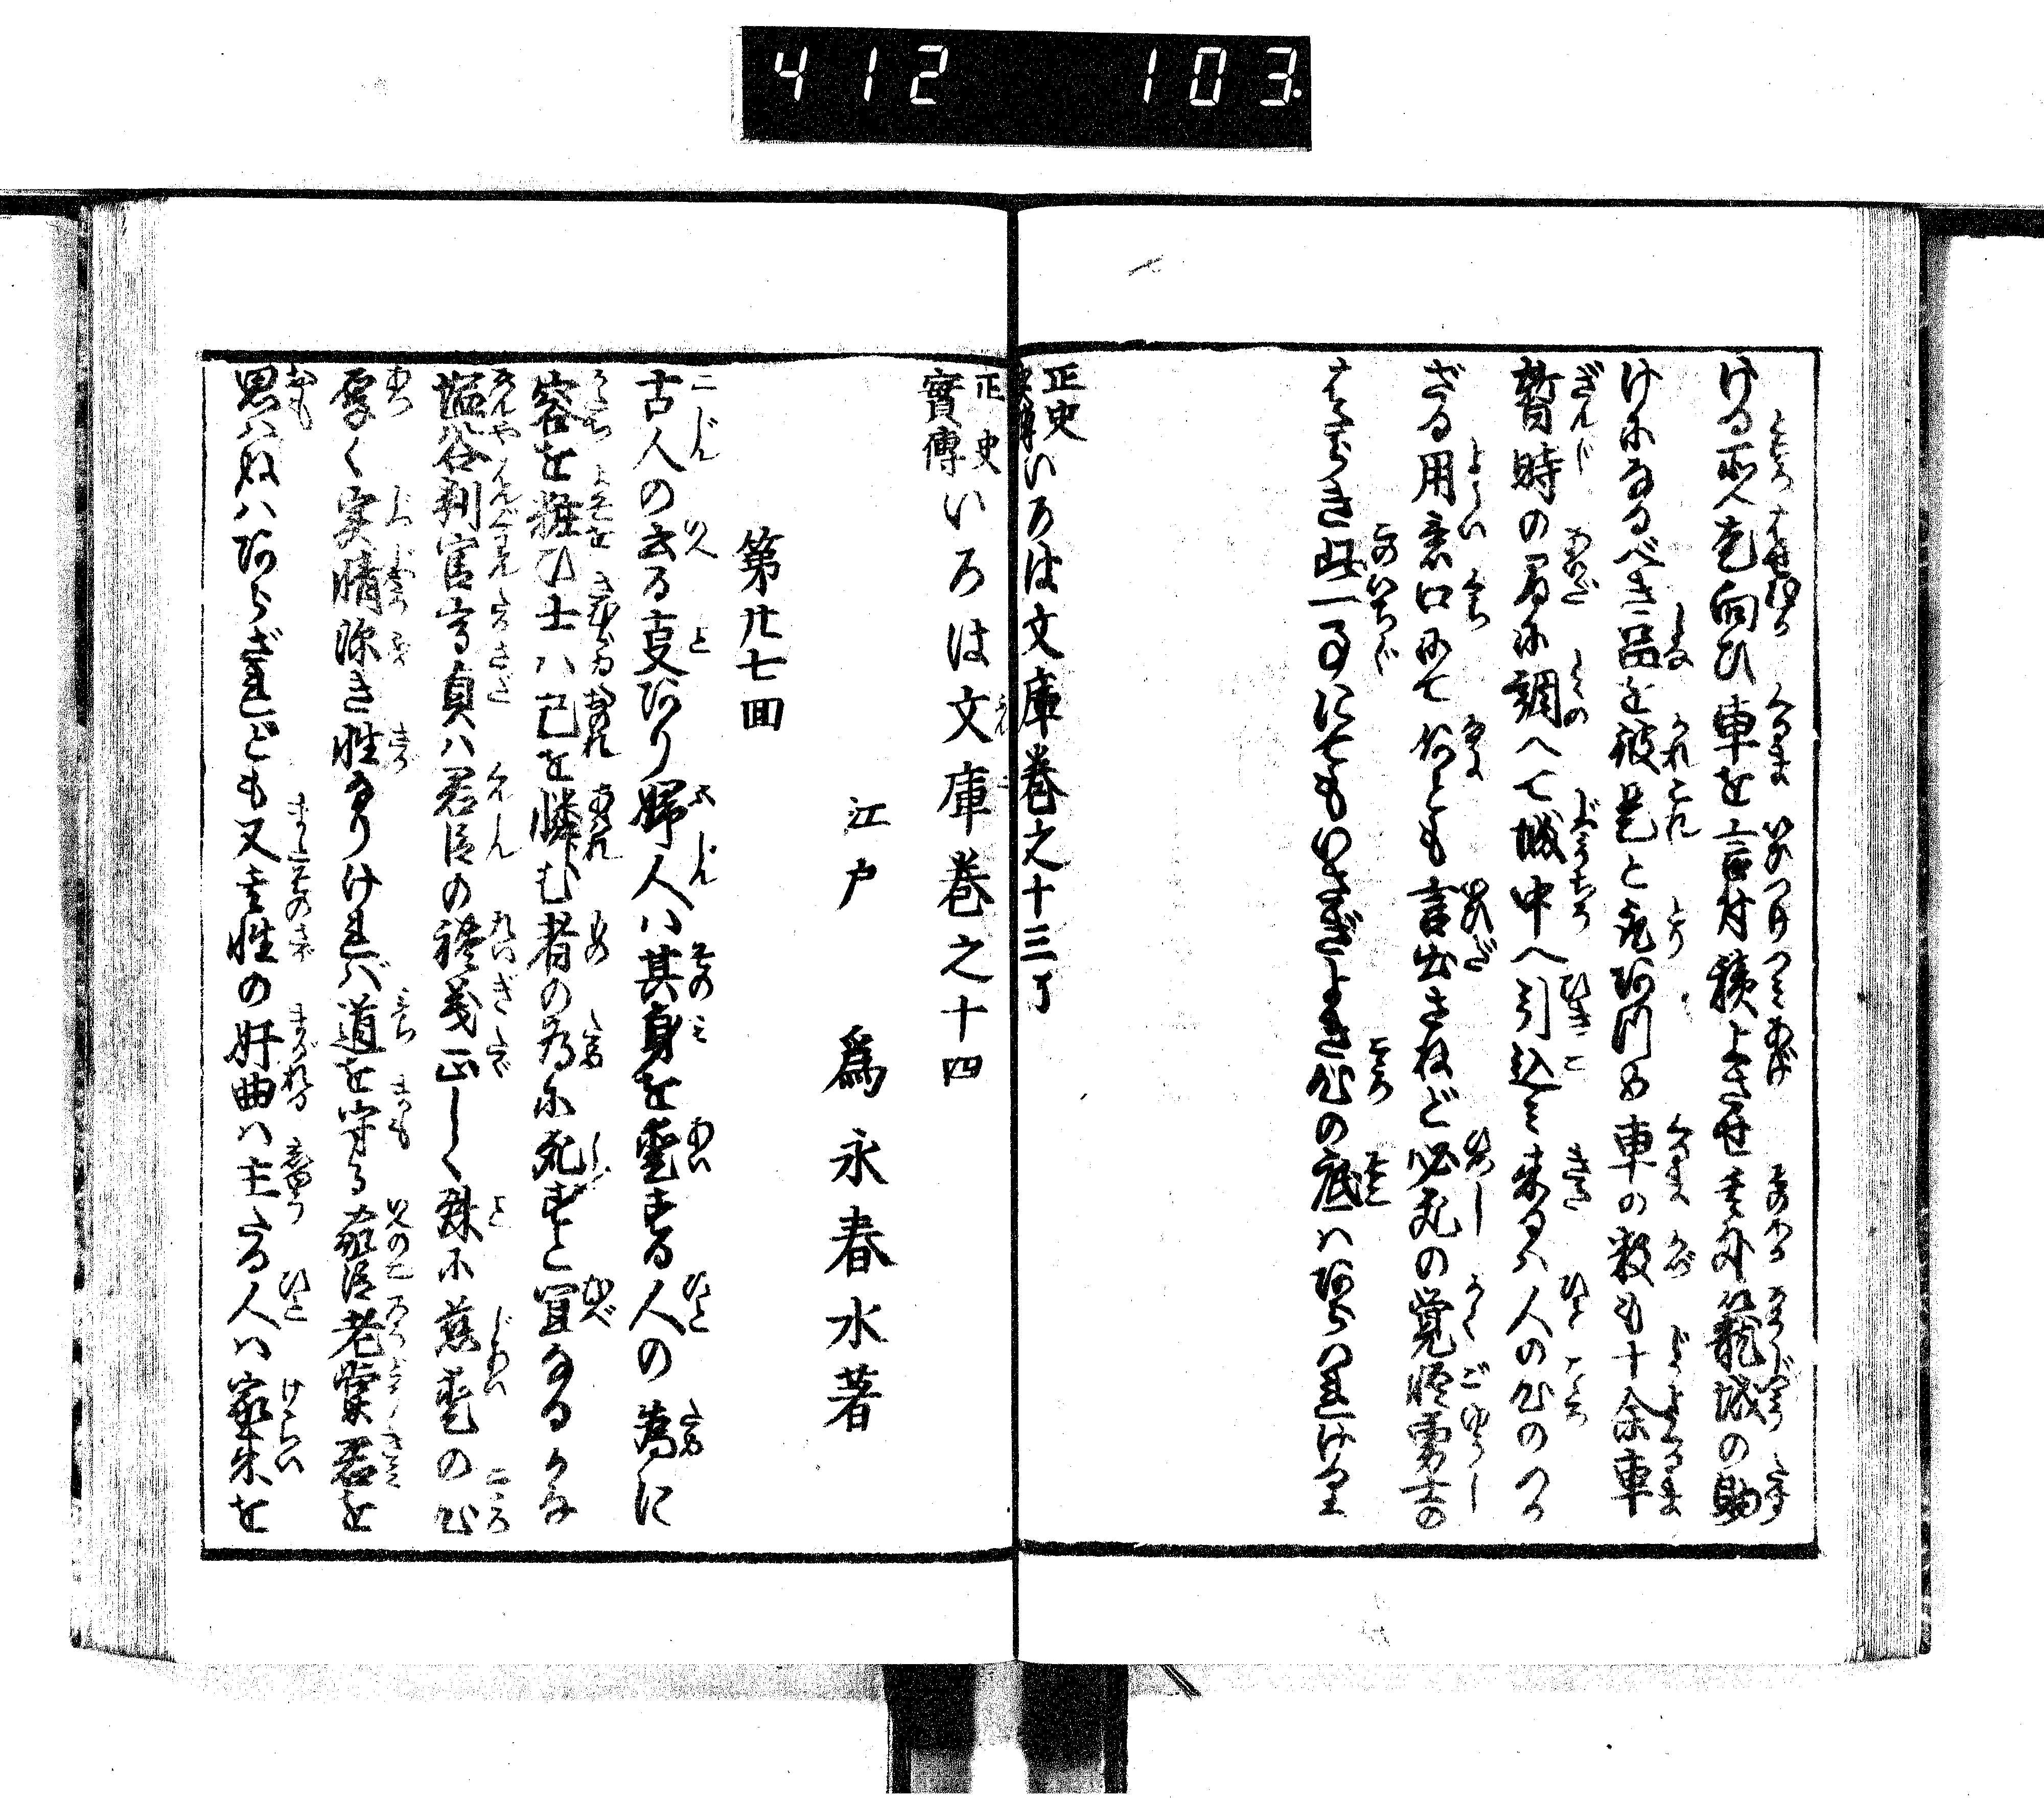 412 103.
ける所へ走向ひ車を言付積よさせ其外籠城の助
けになるべき品を彼是と取あつめ車の数も十余車
暫時の間に調へて城中へ引込ミ来るハ人の心のつか
ざる用意口にて何とも言出さねど必死の覚悟勇士の
はたらき此一事にてもいさぎよき心の底ハあらハれけり
正史実傳いろは文庫巻之十三了
正史實傳いろは文庫巻之十四
江戸 爲永春水著
第廿七回
古人の云る事あり婦人ハ其身を愛する人の為に
容を粧ひ士ハ己を憐む者の為に死すと宜なるかな
塩谷判官高貞ハ君臣の禮義正しく殊に慈愛の心
厚く実情深き性なりけれバ道を守る家臣老黨君を
思ハぬハあらざれども又其性の奸曲ハ主たる人ハ家来を